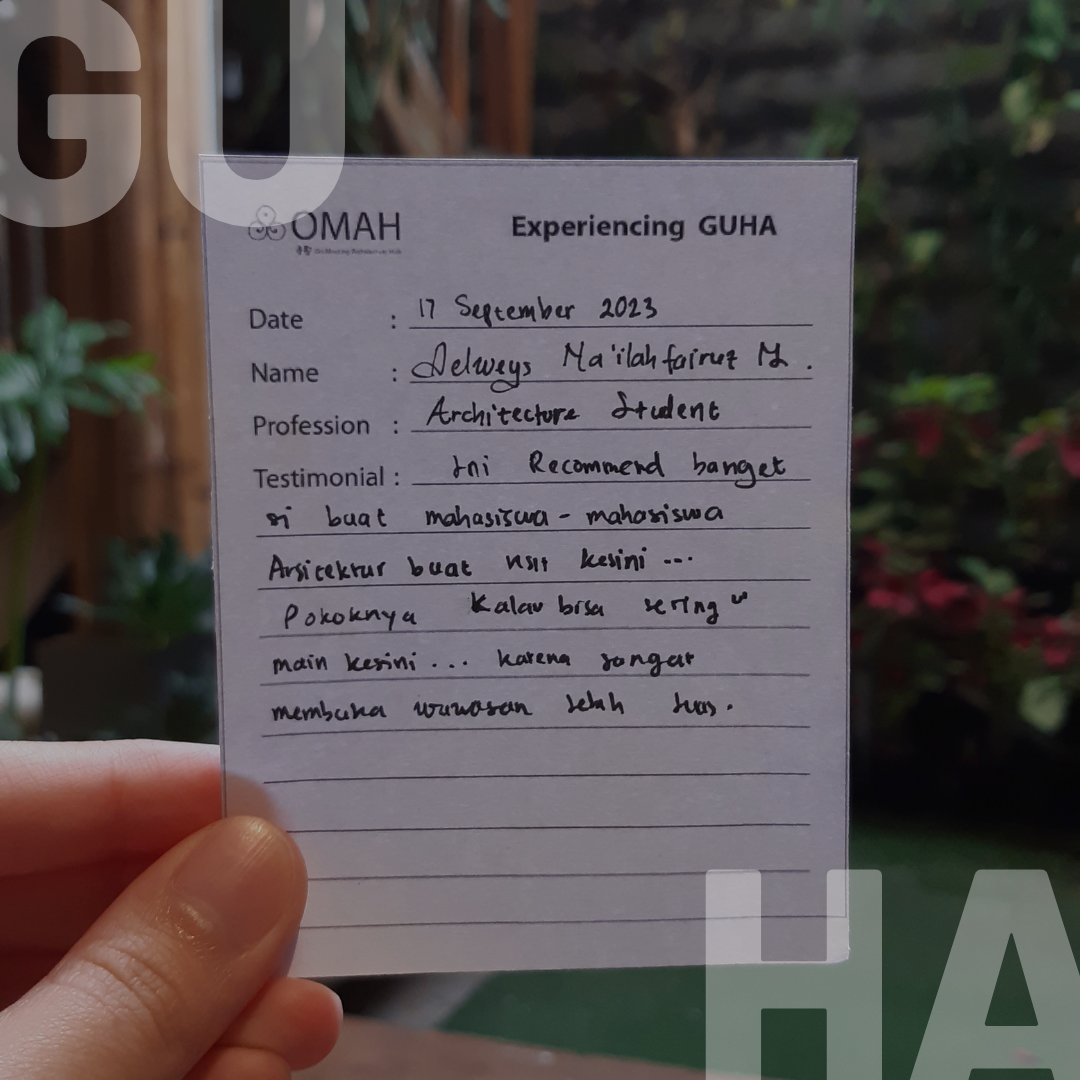 GU
OMAH
Experiencing GUHA
Date : 17 September 2023
Name : Delweys Ma'ilah fairuz M.
Profession : Architecture Student
Testimonial : Ini Recommend banget
si buat mahasiswa - mahasiswa
Arsitektur buat visit kesini ...
Pokoknya Kalau bisa sering"
main kesini ... karena sangat
membuka wawasan lebih luas.
HA